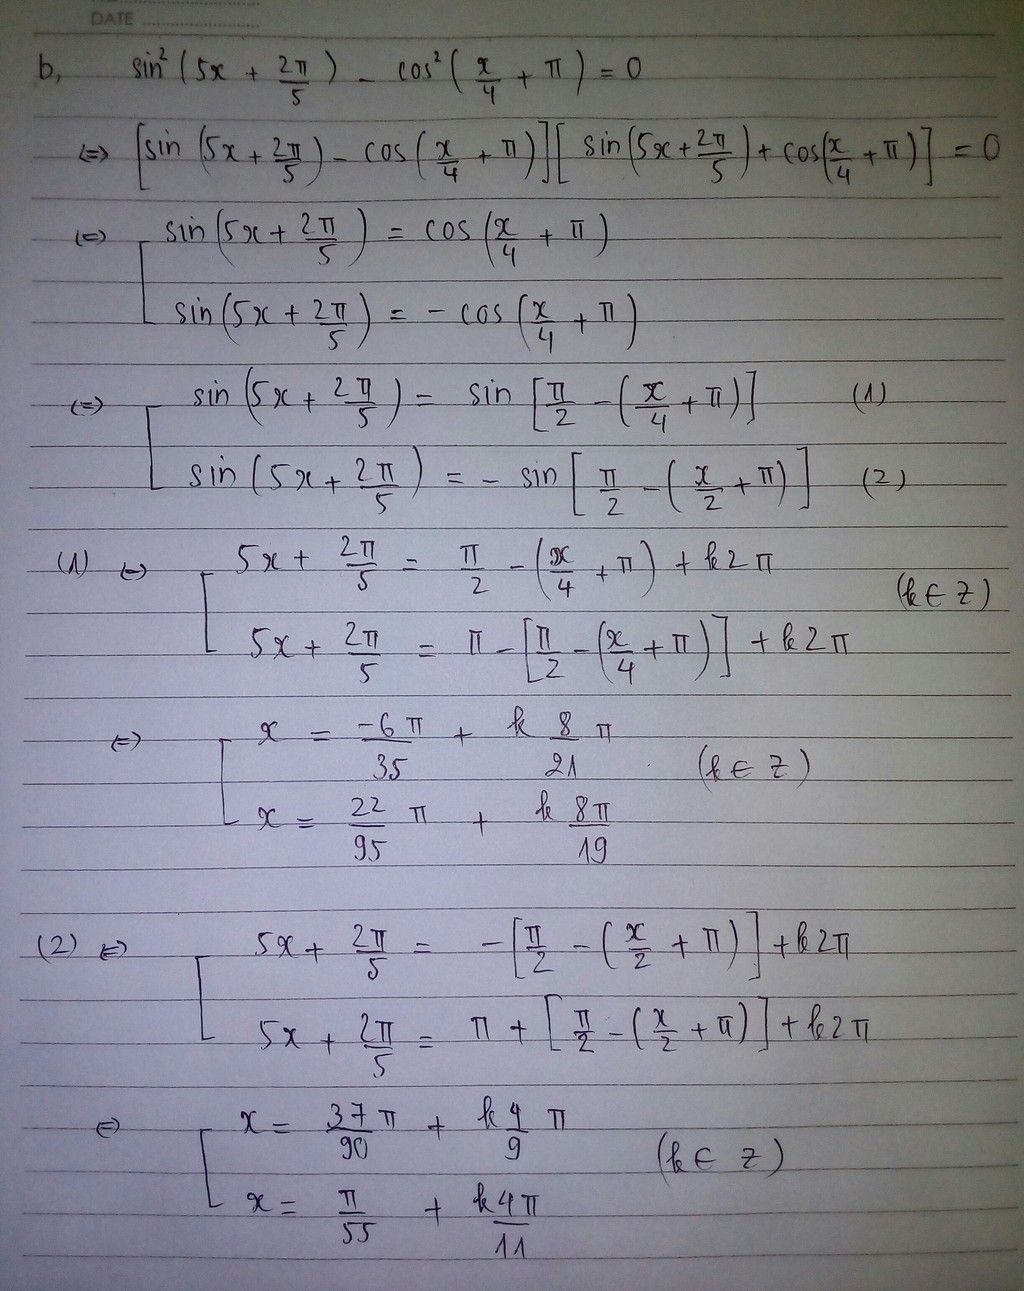 DATE
b, sin²(5x + 2π/5) - cos²(x/4 + π) = 0
⇔ [sin(5x + 2π/5) - cos(x/4 + π)][sin(5x + 2π/5) + cos(x/4 + π)] = 0
⇔ [ sin(5x + 2π/5) = cos(x/4 + π)
sin(5x + 2π/5) = - cos(x/4 + π)
⇔ [ sin(5x + 2π/5) = sin[π/2 - (x/4 + π)] (1)
sin(5x + 2π/5) = - sin[π/2 - (x/2 + π)] (2)
(1) ⇔ [ 5x + 2π/5 = π/2 - (x/4 + π) + k2π
(k ∈ Z)
5x + 2π/5 = π - [π/2 - (x/4 + π)] + k2π
⇔ [ x = -6π/35 + k 8/21 π
(k ∈ Z)
x = 22/95 π + k 8π/19
(2) ⇔ [ 5x + 2π/5 = -[π/2 - (x/2 + π)] + k2π
5x + 2π/5 = π + [π/2 - (x/2 + π)] + k2π
⇔ [ x = 37π/90 + k4/9 π
(k ∈ Z)
x = π/55 + k4π/11